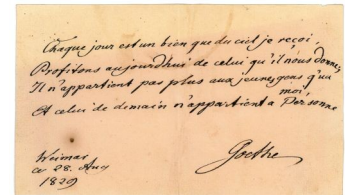 Chaque jour est un bien que du ciel je reçoi,
Profitons aujourd'hui de celui qu'il nous donne,
Il n'appartient pas plus aux jeunes gens qu'a moi,
Et celui de demain n'appartient a Personne
Weimar
ce 28. Aug
1829
Goethe